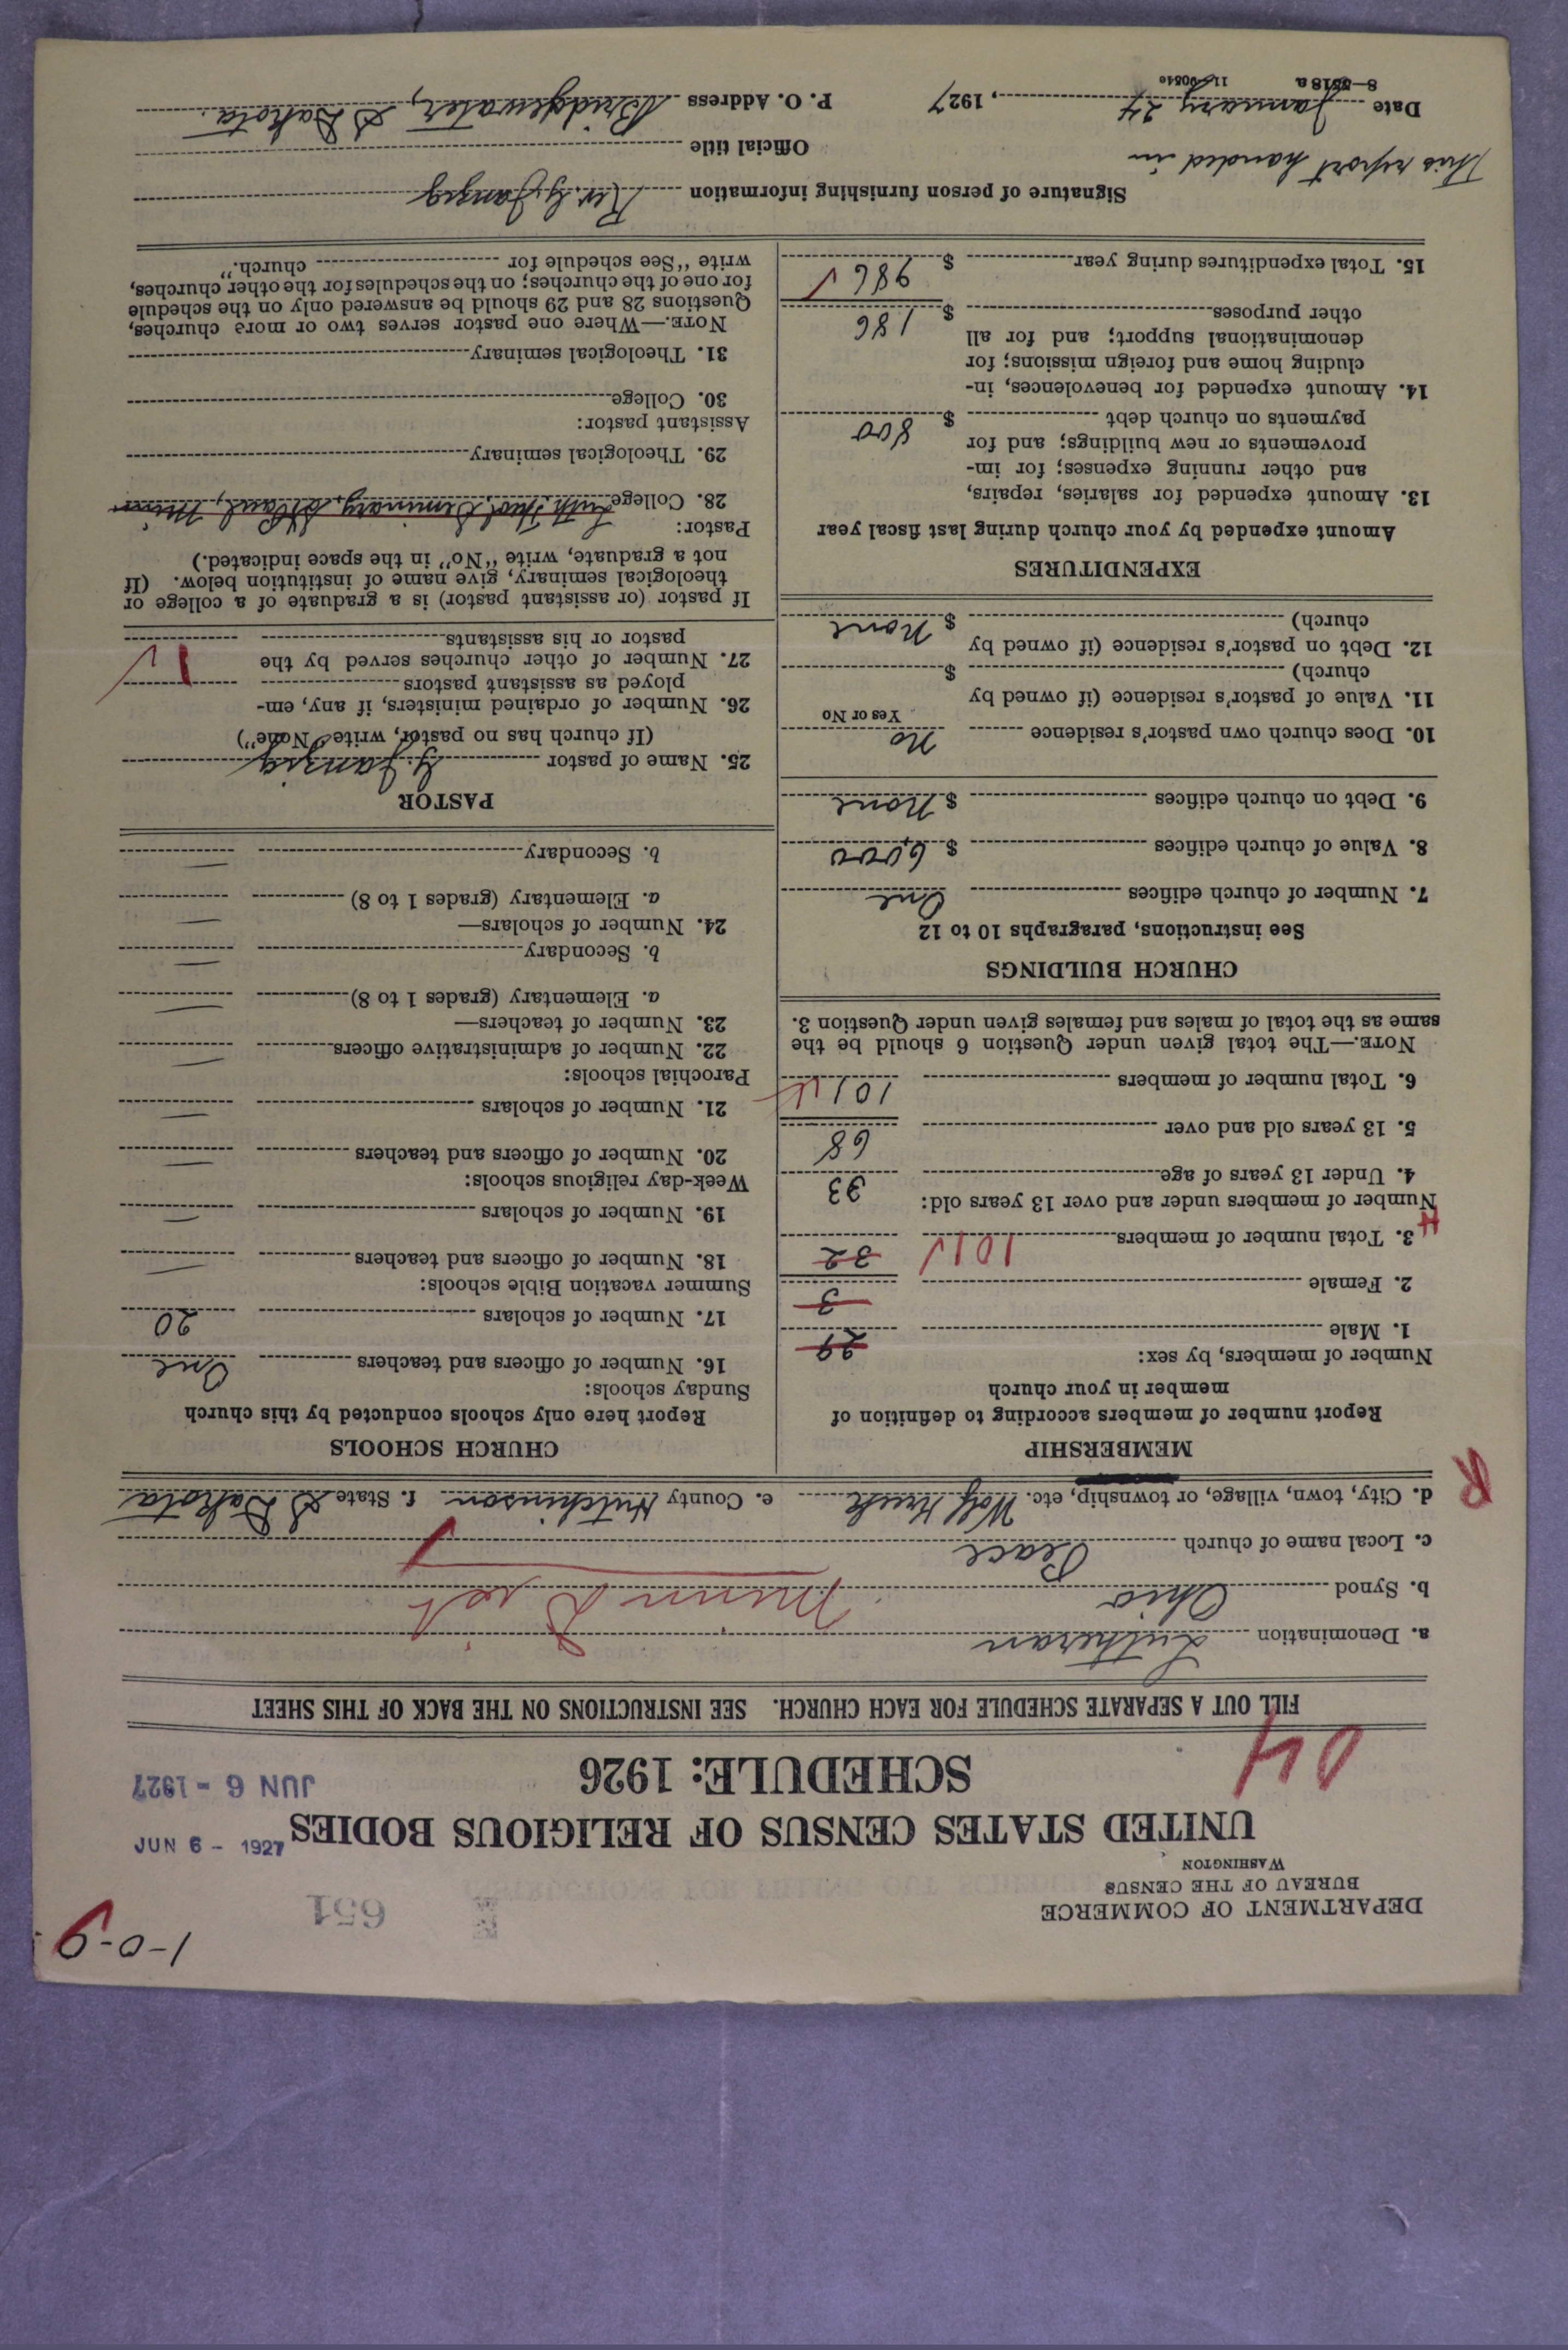 1-0-9
DEPARTMENT OF COMMERCE
BUREAU OF THE CENSUS
WASHINGTON
651
JUN 6 - 1927
UNITED STATES CENSUS OF RELIGIOUS BODIES
SCHEDULE: 1926
JUN 6 - 1927
04
FILL OUT A SEPARATE SCHEDULE FOR EACH CHURCH. SEE INSTRUCTIONS ON THE BACK OF THIS SHEET
a. Denomination Lutheran
b. Synod Ohio Minn Dist
c. Local name of church Peace
d. City, town, village, or township, etc. Wolf Creek e. County Hutchinson f. State S Dakota
R
MEMBERSHIP
Report number of members according to definition of
member in your church
Number of members, by sex:
1. Male 29
2. Female 3
3. Total number of members 101 32
Number of members under and over 13 years old:
4. Under 13 years of age 33
5. 13 years old and over 68
6. Total number of members 101
NOTE.—The total given under Question 6 should be the
same as the total of males and females given under Question 3.
CHURCH BUILDINGS
See instructions, paragraphs 10 to 12
7. Number of church edifices One
8. Value of church edifices $ 6,000
9. Debt on church edifices $ None
10. Does church own pastor's residence No
Yes or No
11. Value of pastor's residence (if owned by
church) $
12. Debt on pastor's residence (if owned by
church) $ None
EXPENDITURES
Amount expended by your church during last fiscal year
13. Amount expended for salaries, repairs,
and other running expenses; for im-
provements or new buildings; and for
payments on church debt $ 800
14. Amount expended for benevolences, in-
cluding home and foreign missions; for
denominational support; and for all
other purposes $ 186
15. Total expenditures during year $ 986
CHURCH SCHOOLS
Report here only schools conducted by this church
Sunday schools:
16. Number of officers and teachers One
17. Number of scholars 20
Summer vacation Bible schools:
18. Number of officers and teachers —
19. Number of scholars —
Week-day religious schools:
20. Number of officers and teachers —
21. Number of scholars —
Parochial schools:
22. Number of administrative officers —
23. Number of teachers—
a. Elementary (grades 1 to 8) —
b. Secondary —
24. Number of scholars—
a. Elementary (grades 1 to 8) —
b. Secondary —
PASTOR
25. Name of pastor G. Janzig
(If church has no pastor, write "None")
26. Number of ordained ministers, if any, em-
ployed as assistant pastors
27. Number of other churches served by the
pastor or his assistants 1
If pastor (or assistant pastor) is a graduate of a college or
theological seminary, give name of institution below. (If
not a graduate, write "No" in the space indicated.)
Pastor:
28. College Luth. Theol. Seminary, St Paul, Minn
29. Theological seminary
Assistant pastor:
30. College
31. Theological seminary
NOTE.—Where one pastor serves two or more churches,
Questions 28 and 29 should be answered only on the schedule
for one of the churches; on the schedules for the other churches,
write "See schedule for church."
Signature of person furnishing information Rev. G. Janzig
This report handed in
Official title
Date January 24, 1927 P. O. Address Bridgewater, S Dakota.
8-5518a